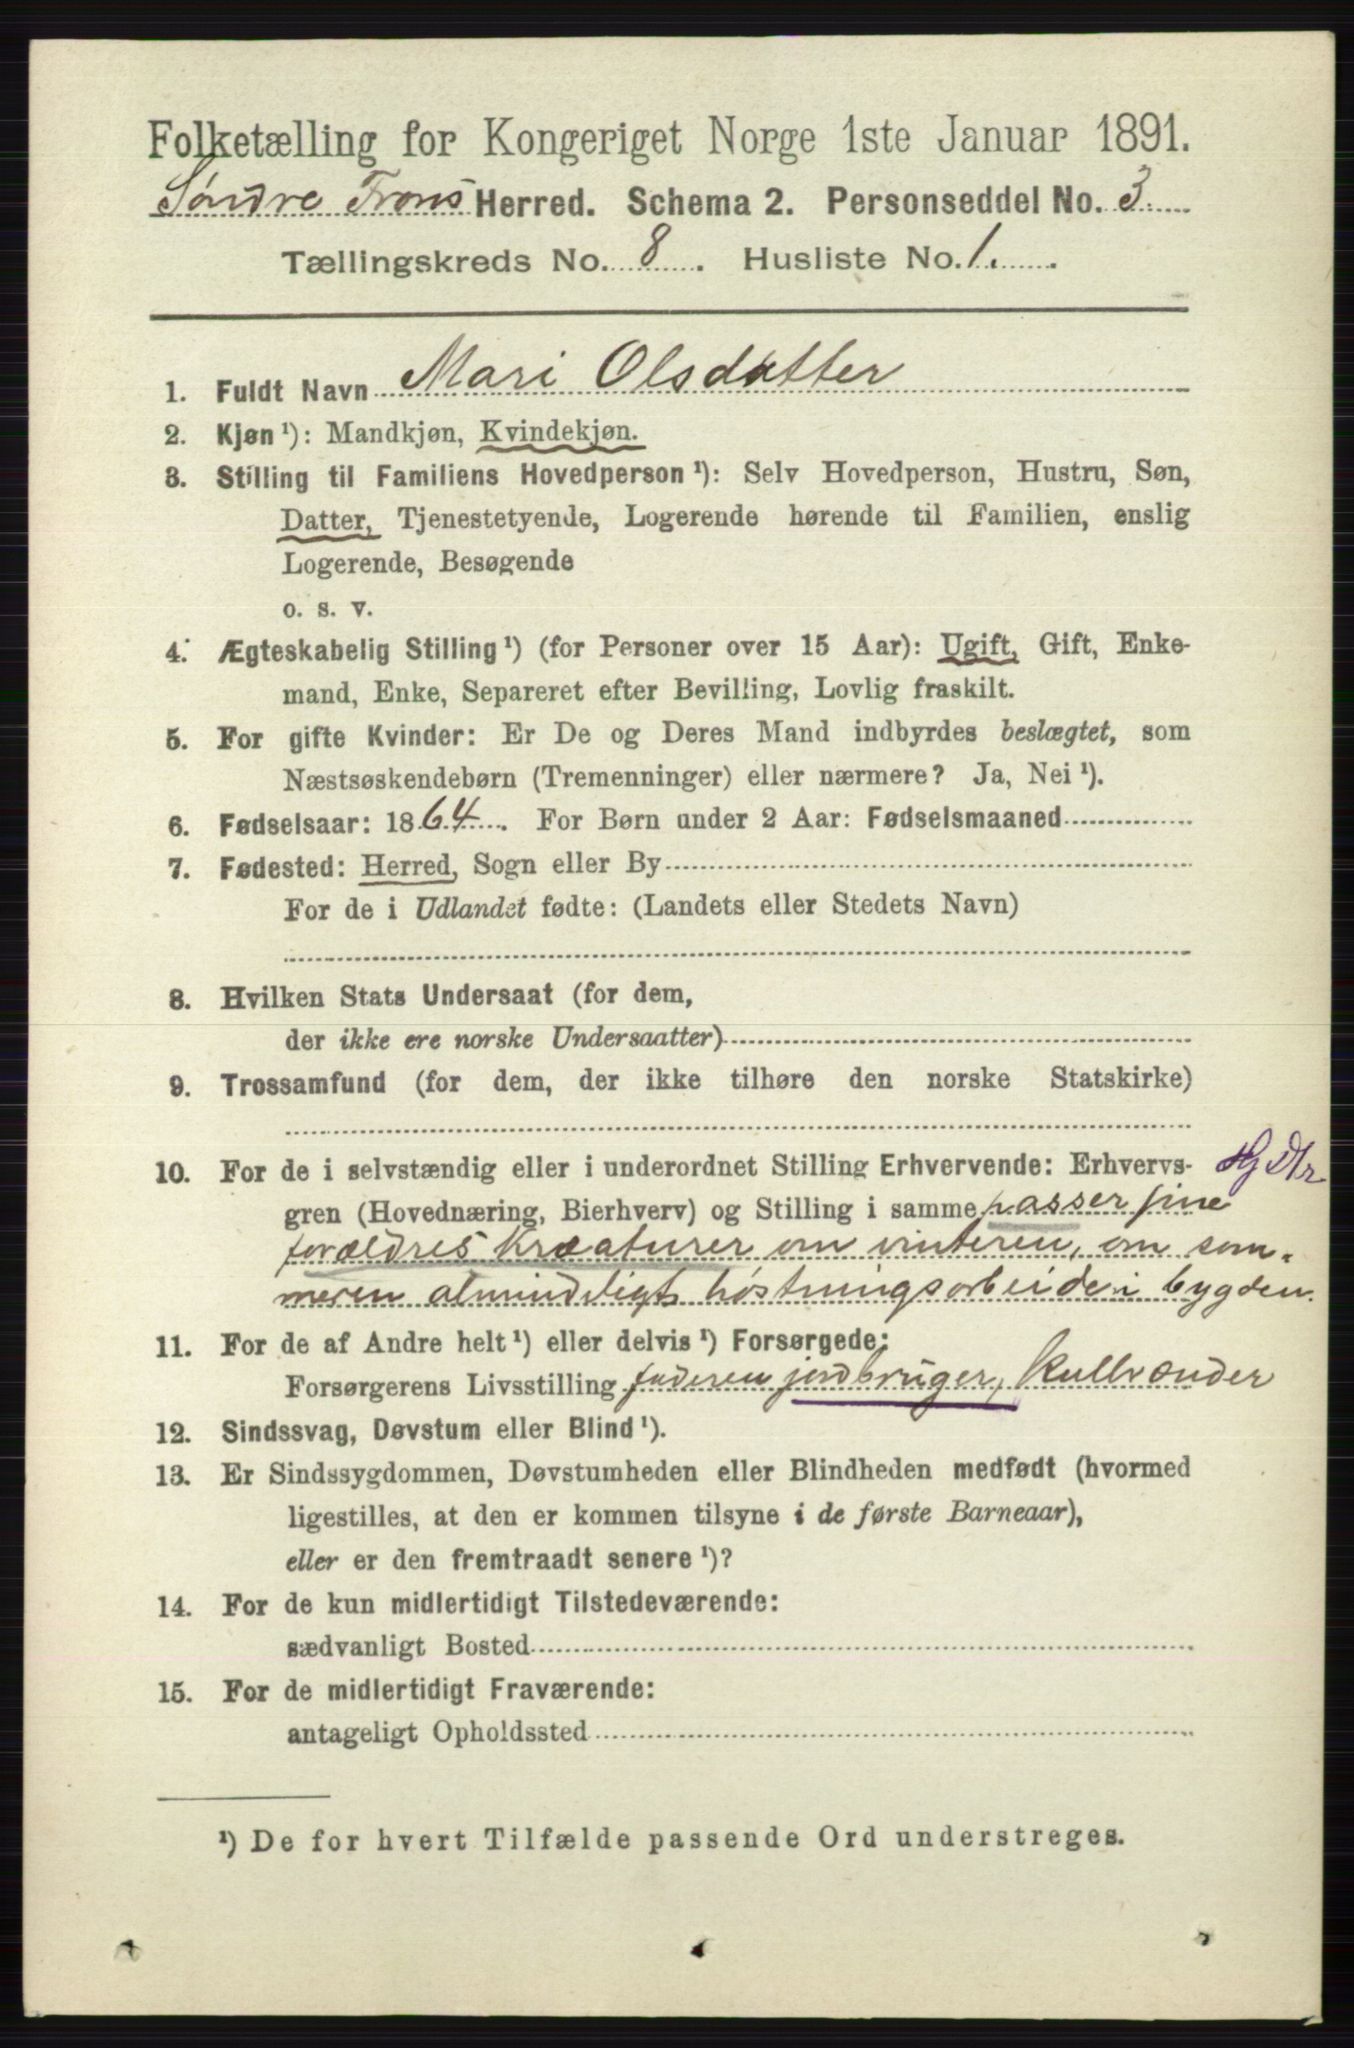 Folketælling for Kongeriget Norge 1ste Januar 1891.
Söndre Frons Herred. Schema 2. Personseddel No. 3
Tællingskreds No. 8. Husliste No. 1.
1. Fuldt Navn Mari Olsdatter
2. Kjøn ¹): Mandkjøn, Kvindekjøn.
3. Stilling til Familiens Hovedperson ¹): Selv Hovedperson, Hustru, Søn,
Datter, Tjenestetyende, Logerende hørende til Familien, enslig
Logerende, Besøgende
o. s. v.
4. Ægteskabelig Stilling ¹) (for Personer over 15 Aar): Ugift, Gift, Enke-
mand, Enke, Separeret efter Bevilling, Lovlig fraskilt.
5. For gifte Kvinder: Er De og Deres Mand indbyrdes beslægtet, som
Næstsøskendebørn (Tremenninger) eller nærmere? Ja, Nei ¹).
6. Fødselsaar: 1864. For Børn under 2 Aar: Fødselsmaaned
7. Fødested: Herred, Sogn eller By
For de i Udlandet fødte: (Landets eller Stedets Navn)
8. Hvilken Stats Undersaat (for dem,
der ikke ere norske Undersaatter)
9. Trossamfund (for dem, der ikke tilhøre den norske Statskirke)
10. For de i selvstændig eller i underordnet Stilling Erhvervende: Erhvervs- Hj Dtr
gren (Hovednæring, Bierhverv) og Stilling i samme passer sine
forældres Kræaturer om vinteren, om som-
meren almindeligt höstningsarbeide i bygden.
11. For de af Andre helt ¹) eller delvis ¹) Forsørgede:
Forsørgerens Livsstilling faderen jordbruger,
12. Sindssvag, Døvstum eller Blind ¹).
13. Er Sindssygdommen, Døvstumheden eller Blindheden medfødt (hvormed
ligestilles, at den er kommen tilsyne i de første Barneaar),
eller er den fremtraadt senere ¹)?
14. For de kun midlertidigt Tilstedeværende:
sædvanligt Bosted
15. For de midlertidigt Fraværende:
antageligt Opholdssted
¹) De for hvert Tilfælde passende Ord understreges.